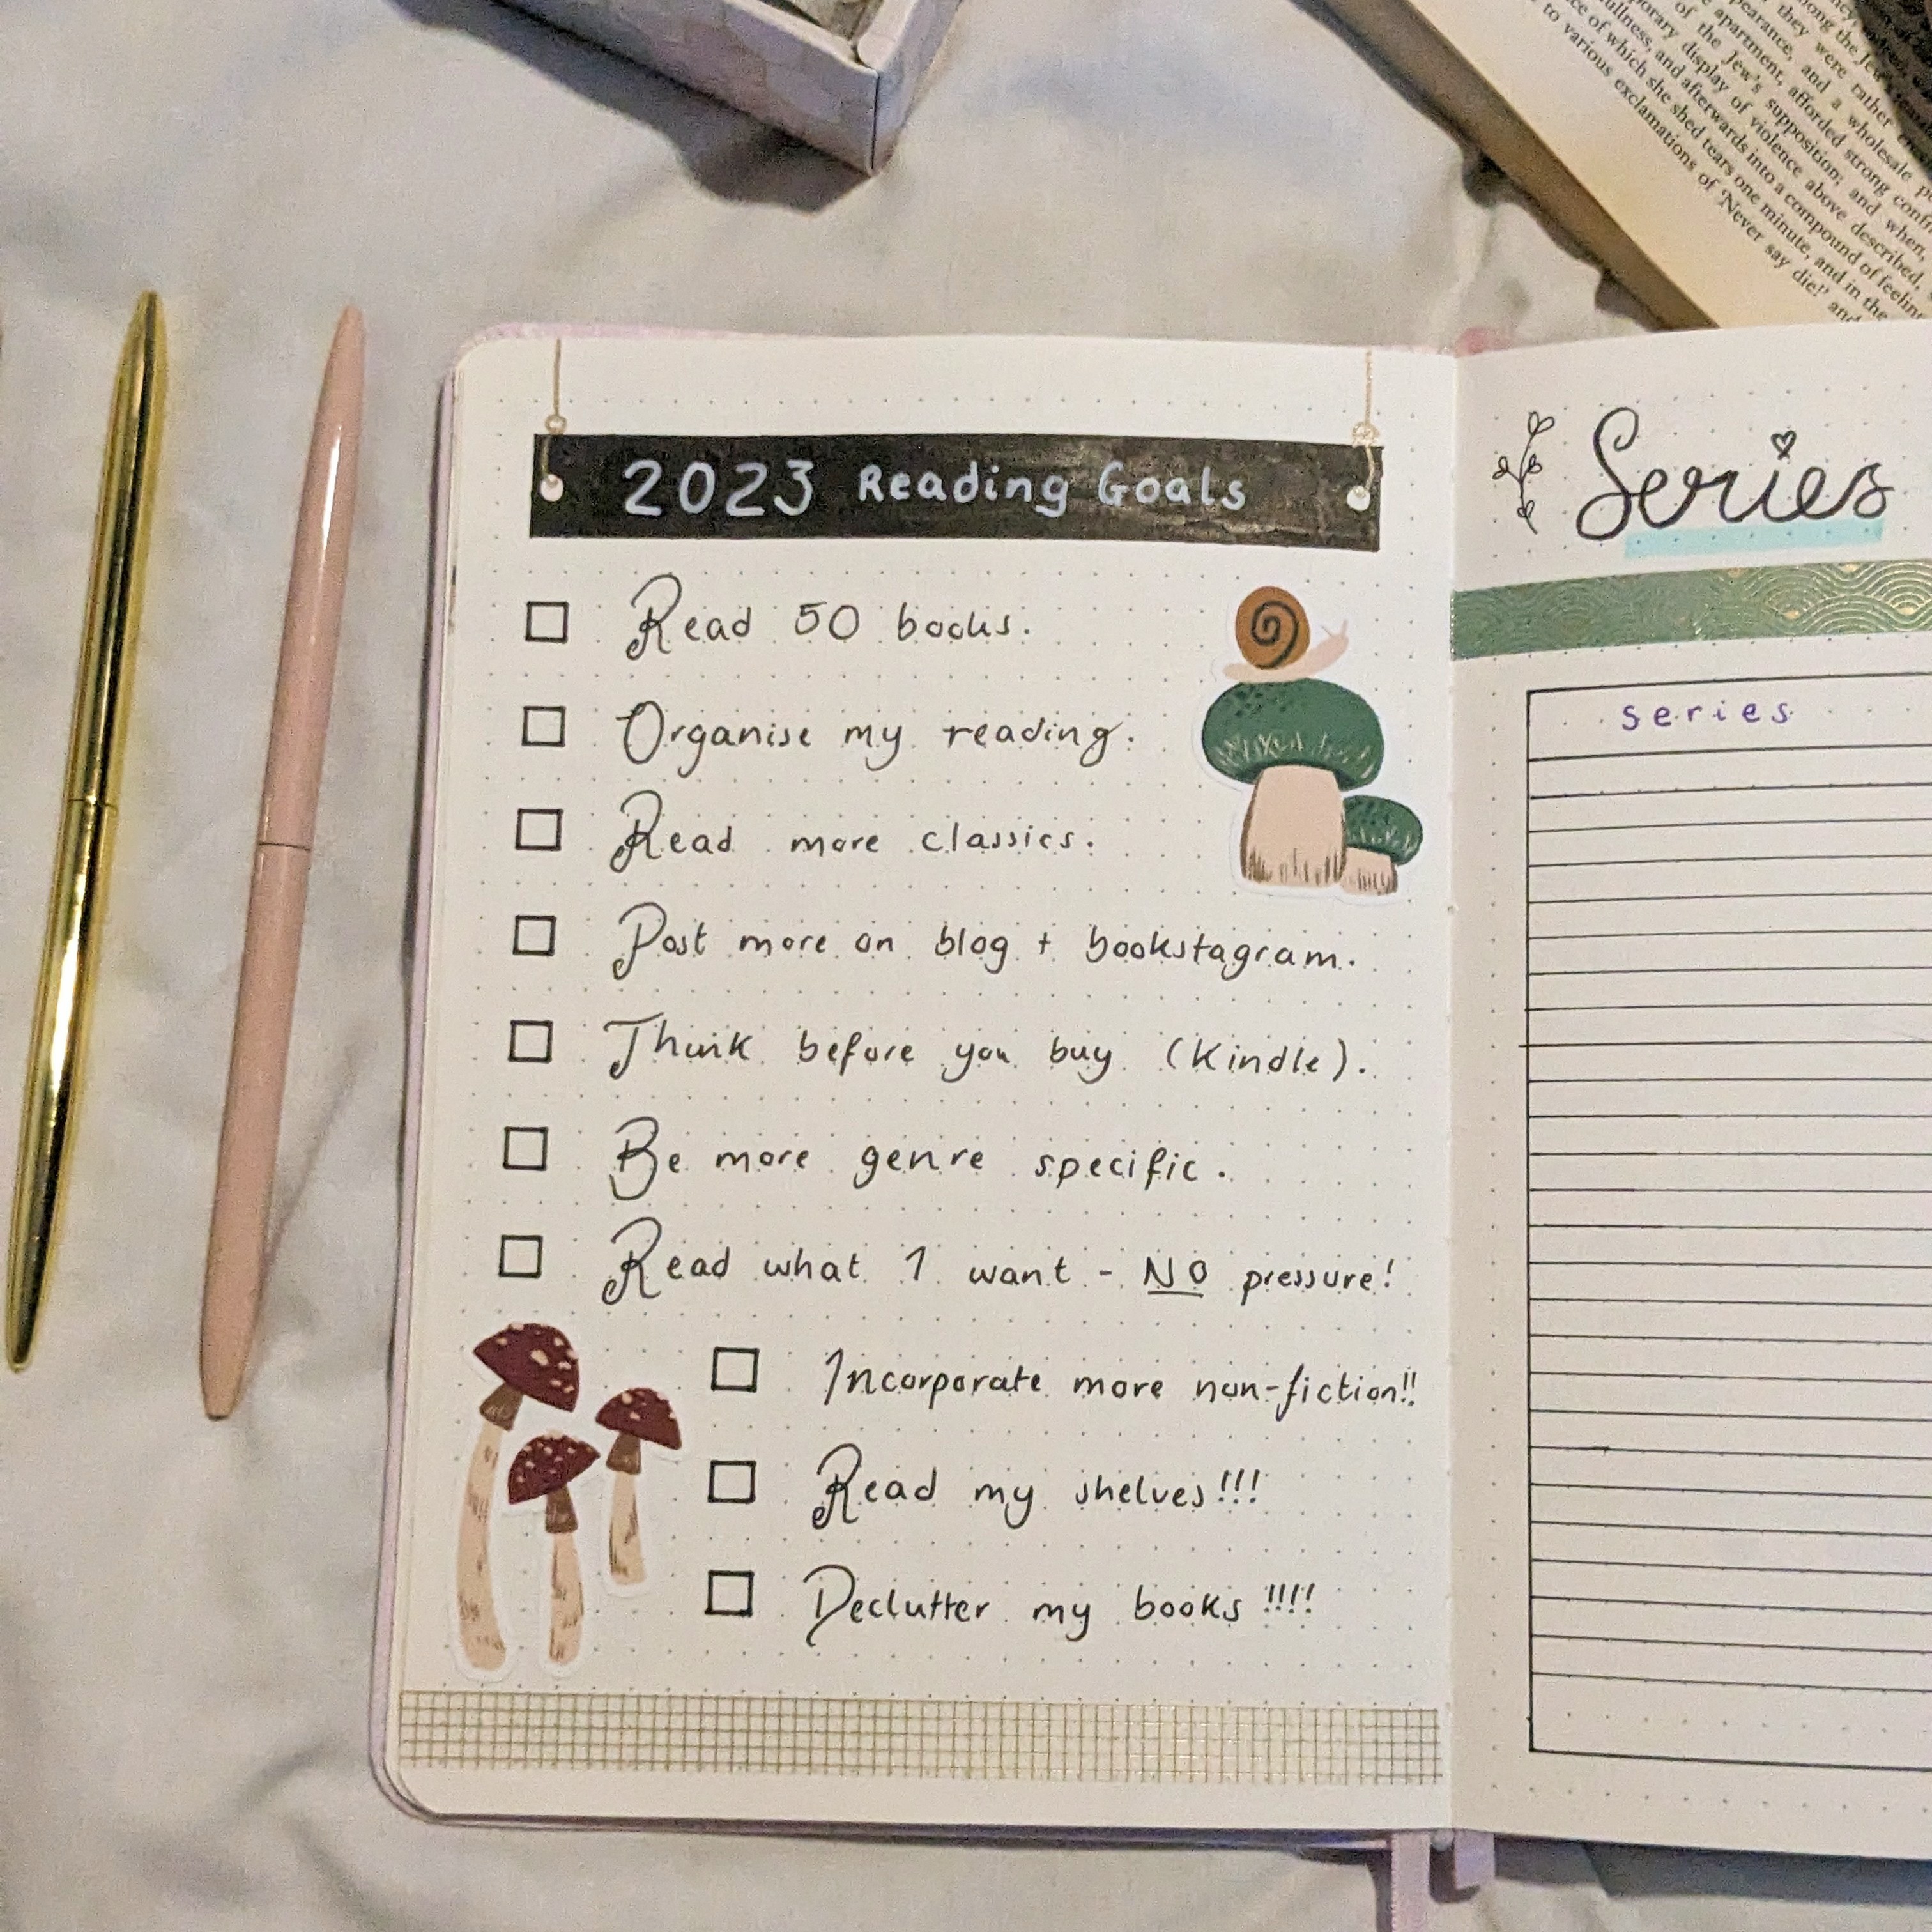 2023 Reading Goals
Read 50 books.
Organise my reading.
Read more classics.
Post more on blog + bookstagram.
Think before you buy (Kindle).
Be more genre specific.
Read what I want - NO pressure!
Incorporate more non-fiction!!
Read my shelves!!!
Declutter my books!!!!
Series
series
among the Jew's
they were rather
pearance, and a wholesale
apartment, afforded strong
of the Jew's supposition; and when,
porary display of violence above described,
fullness, and afterwards into a compound of
ce of which she shed tears one minute, and in the
to various exclamations of 'Never say die!' and